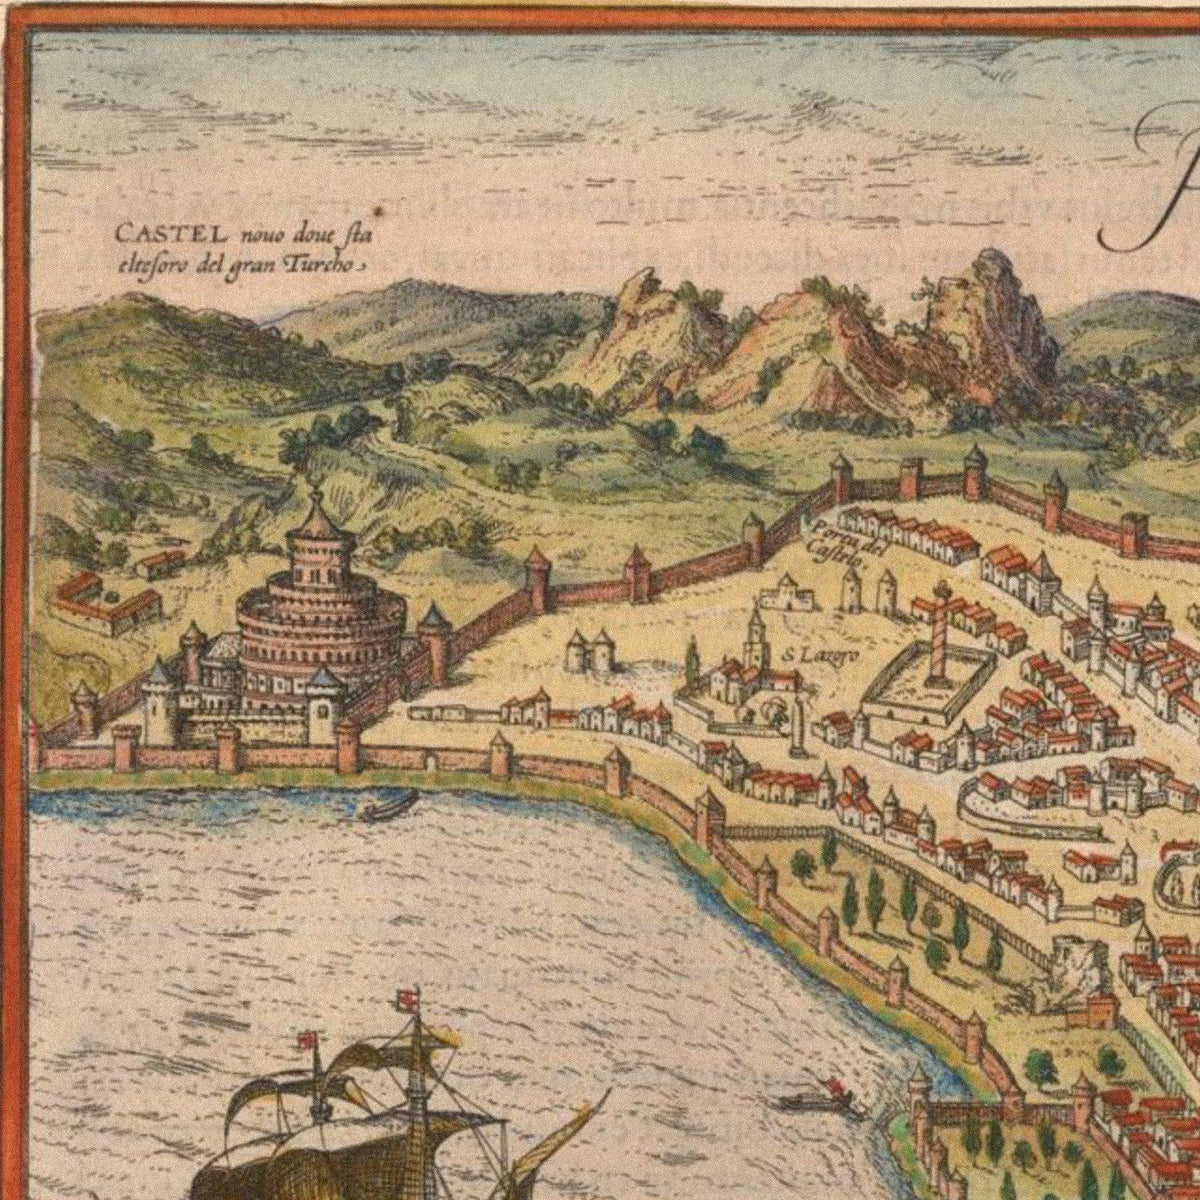 CASTEL nouo doue sta
eltesoro del gran Turcho.
Porta del
Castello
S Lazero
3